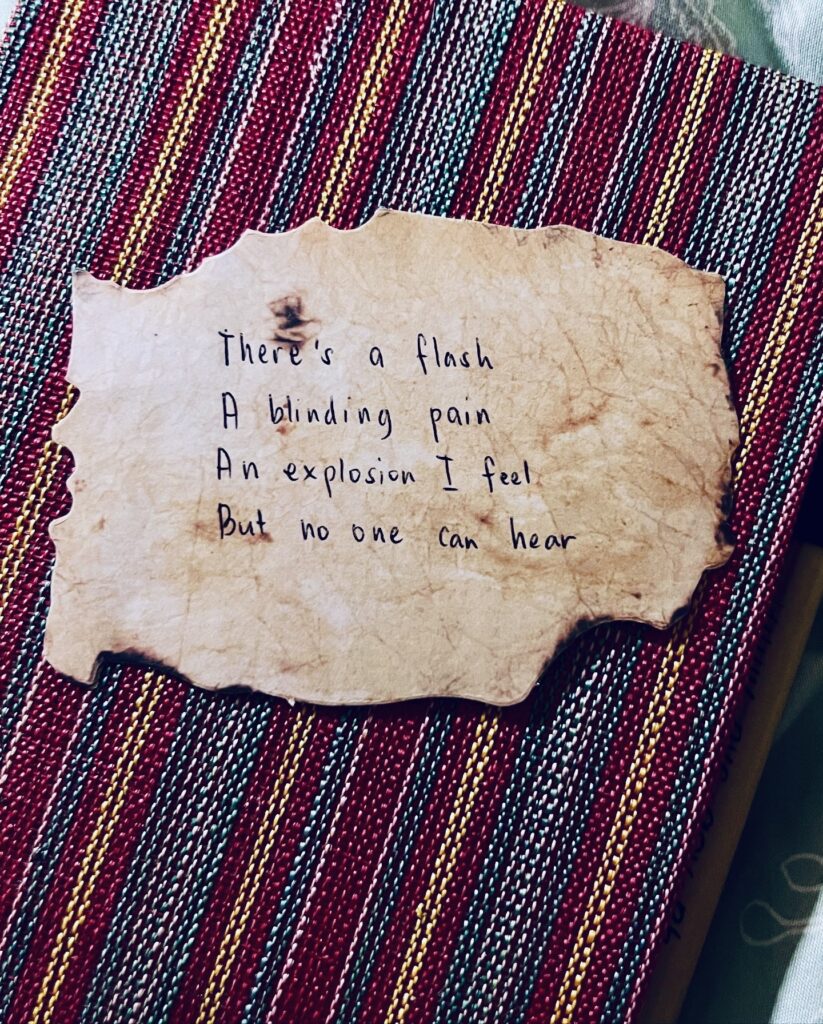 There's a flash
A blinding pain
An explosion I feel
But no one can hear